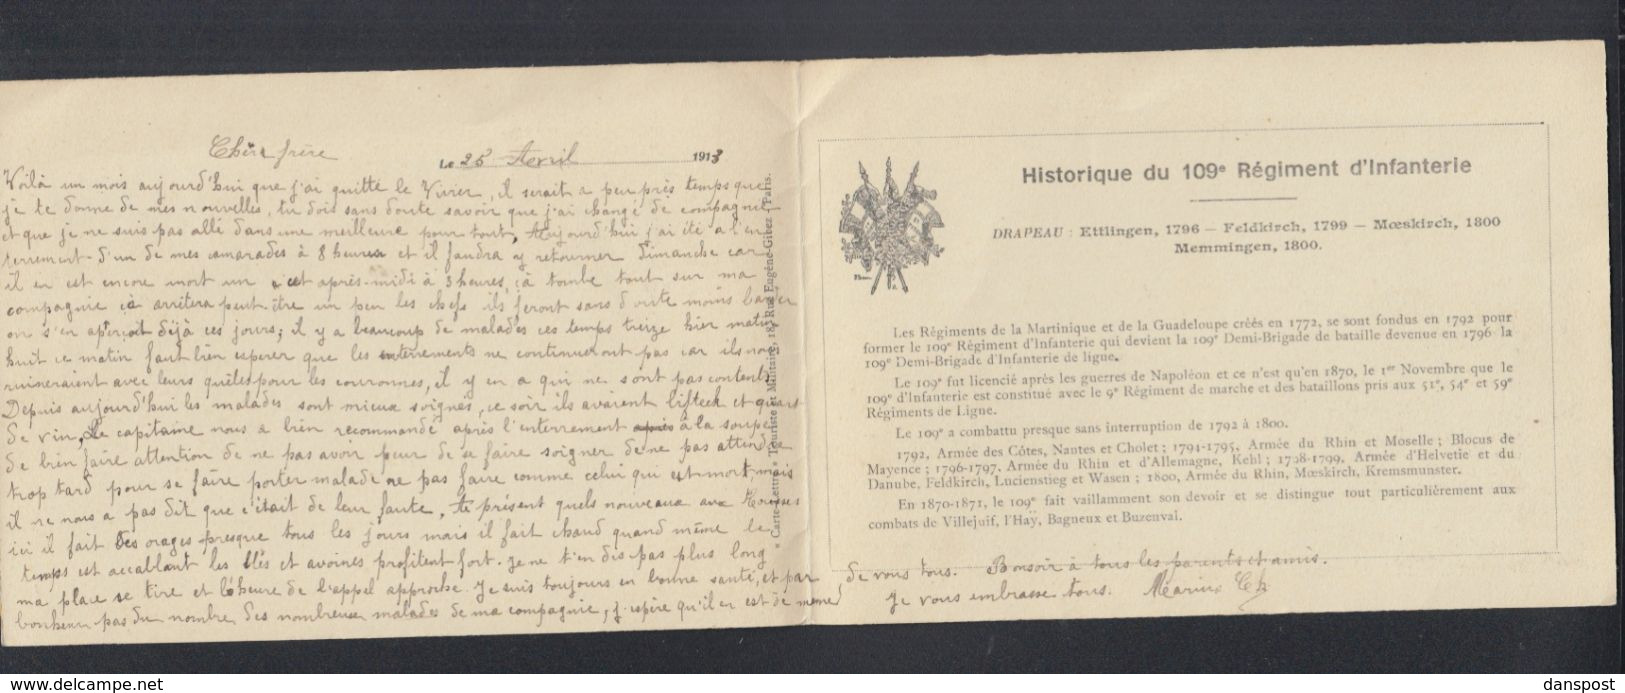 Cher frère
Le 25 Avril 1913
Voilà un mois aujourd'hui que j'ai quitté le Vivier, il serait a peu près temps que
je te donne de mes nouvelles, tu dois sans doute savoir que j'ai changé de compagnie
et que je ne suis pas allé dans une meilleure pour tout, Aujourd'hui j'ai été a l'en
terrement d'un de mes camarades à 8 heures et il faudra y retourner Dimanche car
il en est encore mort un cet après-midi à 3 heures, ça tombe tout sur ma
compagnie ça arrêtera peut être un peu les chefs ils feront sans doute moins barder
on s'en aperçoit déjà ces jours; il y a beaucoup de malades ces temps treize hier matin
huit ce matin faut bien esperer que les enterrements ne continueront pas car ils nous
ruineraient avec leurs quêtes pour les couronnes, il y en a qui ne sont pas contents
Depuis aujourd'hui les malades sont mieux soignés, ce soir ils avaient bifteck et quart
de vin, Le capitaine nous a bien recommandé après l'enterrement à la soupe
de bien faire attention de ne pas avoir peur de se faire soigner de ne pas attendre
trop tard pour se faire porter malade ne pas faire comme celui qui est mort, mais
il ne nous a pas dit que c'était de leur faute, A présent quels nouveaux aux Housses
ici il fait des orages presque tous les jours mais il fait chaud quand même le
temps est accablant les blés et avoines profitent fort. Je ne t'en dis pas plus long
ma place se tire et l'heure de l'appel approche. Je suis toujours en bonne santé, et par
bonheur pas du nombre des nombreux malades de ma compagnie, j'espère qu'il en est de même
de vous tous. Bonsoir à tous les parents et amis.
Je vous embrasse tous. Marius Ch
" Carte-Lettre " Touriste et Militaire, 18, Rue Eugène-Gibez - Paris.
Historique du 109e Régiment d'Infanterie
DRAPEAU : Ettlingen, 1796 — Feldkirch, 1799 — Mœskirch, 1800
Memmingen, 1800.
Les Régiments de la Martinique et de la Guadeloupe créés en 1772, se sont fondus en 1792 pour
former le 109e Régiment d'Infanterie qui devient la 109e Demi-Brigade de bataille devenue en 1796 la
109e Demi-Brigade d'Infanterie de ligne.
Le 109e fut licencié après les guerres de Napoléon et ce n'est qu'en 1870, le 1er Novembre que le
109e d'Infanterie est constitué avec le 9e Régiment de marche et des bataillons pris aux 51e, 54e et 59e
Régiments de Ligne.
Le 109e a combattu presque sans interruption de 1792 à 1800.
1792, Armée des Côtes, Nantes et Cholet ; 1794-1795, Armée du Rhin et Moselle ; Blocus de
Mayence ; 1796-1797, Armée du Rhin et d'Allemagne, Kehl ; 1798-1799, Armée d'Helvétie et du
Danube, Feldkirch, Lucienstieg et Wasen ; 1800, Armée du Rhin, Mœskirch, Kremsmunster.
En 1870-1871, le 109e fait vaillamment son devoir et se distingue tout particulièrement aux
combats de Villejuif, l'Haÿ, Bagneux et Buzenval.
www.delcampe.net
danspost